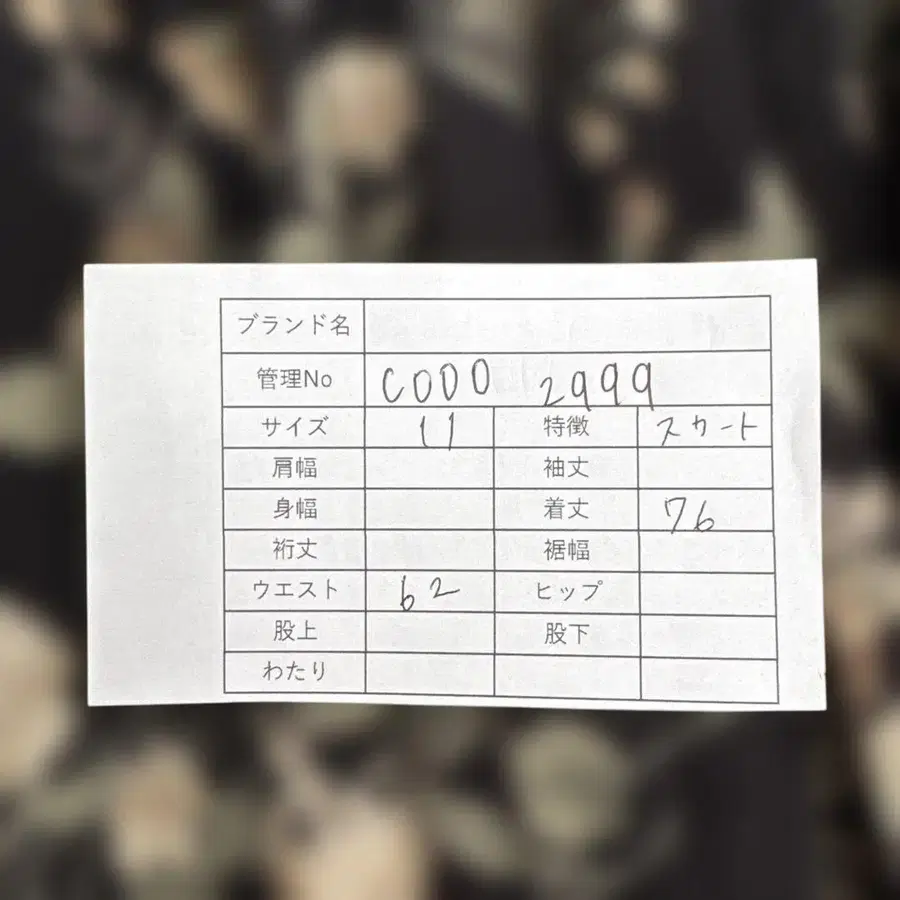 ブランド名
管理No C000 2999
サイズ 11 特徴 スカート
肩幅 袖丈
身幅 着丈 76
裄丈 裾幅
ウエスト 62 ヒップ
股上 股下
わたり